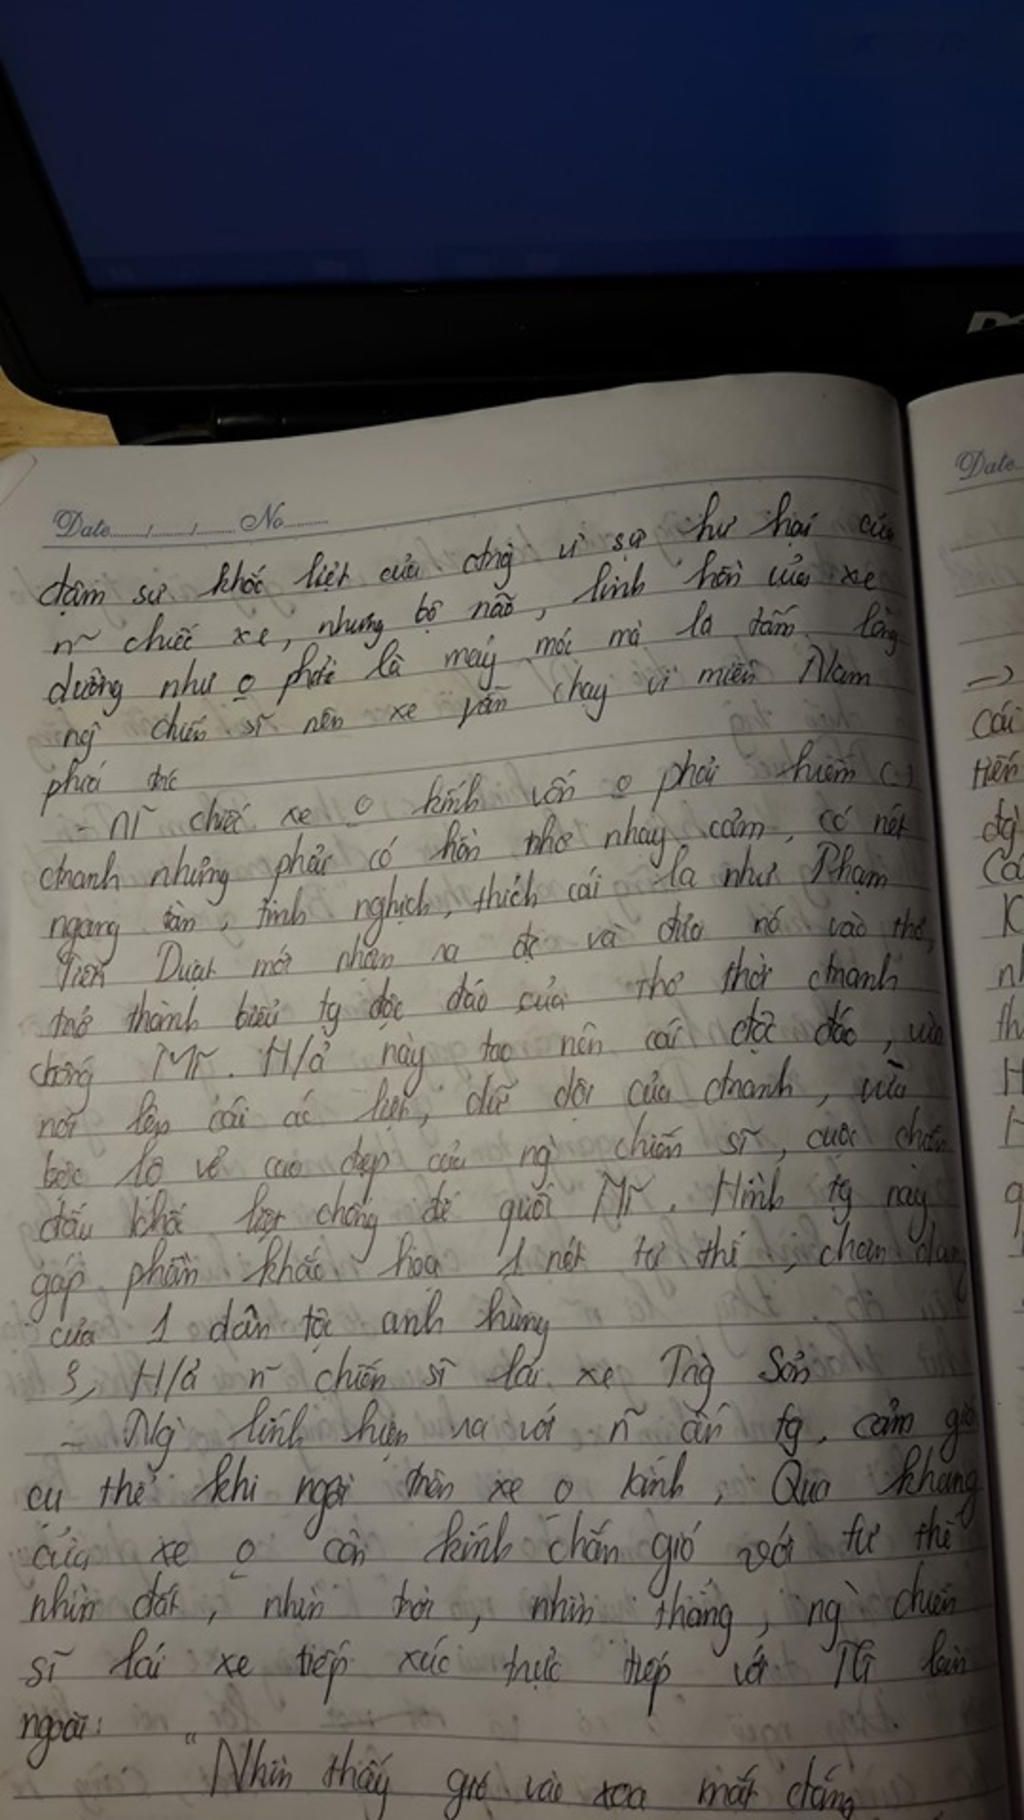 Date...../...../..... No..........
đậm sự khốc liệt của đng vì sự hư hại của
n~ chiếc xe, nhưng bộ não, linh hồn của xe
dường như o phải là máy móc mà là tấm lòng
ng` chiến sĩ nên xe vẫn chạy vì miền Nam
phía trc
- N~ chiếc xe o kính vốn o phải hiếm (..)
ctranh nhưng phải có hồn thơ nhạy cảm, có nét
ngang tàn, tinh nghịch, thích cái lạ như Phạm
Tiến Duật mới nhận ra đc và đưa nó vào thơ,
trở thành biểu tg độc đáo của thơ thời ctranh
chống Mĩ. H/ả này tạo nên cái độc đáo, vừa
nói lên cái ác liệt, dữ dội của ctranh, vừa
bộc lộ vẻ cao đẹp của ng` chiến sĩ, cuộc chiến
đấu khốc liệt chống đế quốc Mĩ. Hình tg này
góp phần khắc họa 1 nét tư thế, chân dung
của 1 dân tộc anh hùng
3, H/ả n~ chiến sĩ lái xe Trg` Sơn
- Ng` lính hiện ra với n~ ấn tg, cảm giác
cụ thể khi ngồi trên xe o kính, Qua khung
cửa xe o còn kính chắn gió, với tư thế
nhìn đất, nhìn trời, nhìn thẳng, ng` chiến
sĩ lái xe tiếp xúc trực tiếp với TG bên
ngoài:
"Nhìn thấy gió vào xoa mắt đắng
Date
->
Cái
tiến